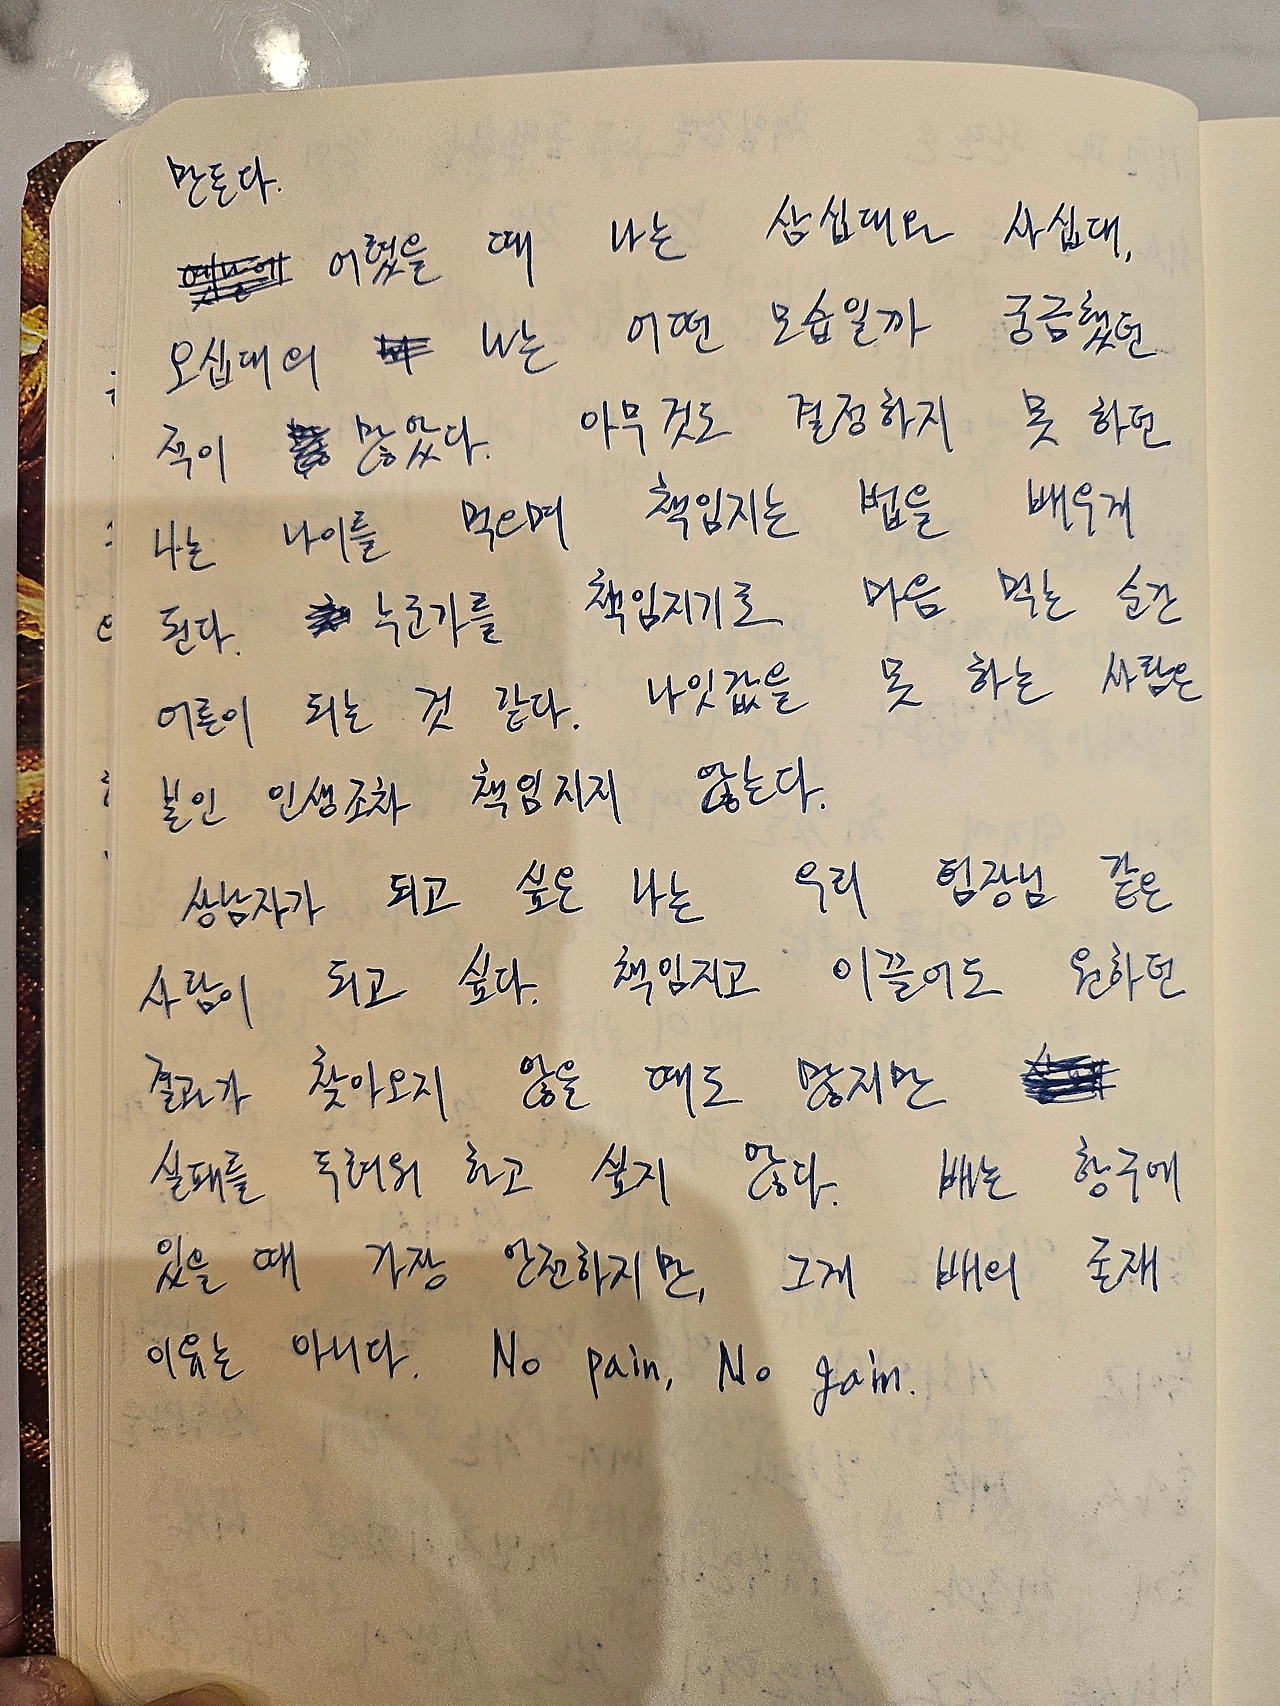 만든다.
어렸을 때 나는 삼십대와 사십대,
오십대의 나는 어떤 모습일까 궁금했던
적이 많았다. 아무것도 결정하지 못 하던
나는 나이를 먹으며 책임지는 법을 배우게
된다. 누군가를 책임지기로 마음 먹는 순간
어른이 되는 것 같다. 나잇값을 못 하는 사람은
본인 인생조차 책임지지 않는다.
상남자가 되고 싶은 나는 우리 팀장님 같은
사람이 되고 싶다. 책임지고 이끌어도 원하던
결과가 찾아오지 않을 때도 많지만
실패를 두려워 하고 싶지 않다. 배는 항구에
있을 때 가장 안전하지만, 그게 배의 존재
이유는 아니다. No pain, No gain.